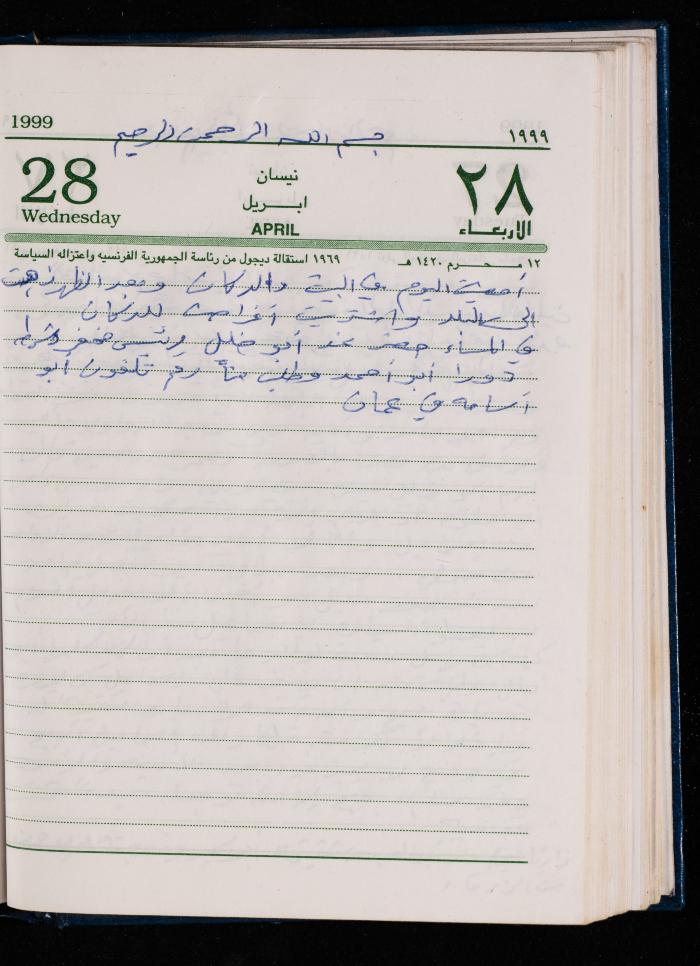 1999
١٩٩٩
بسم الله الرحمن الرحيم
28
Wednesday
نيسان
ابـــريل
APRIL
٢٨
الاربعاء
١٢ محـــرم ١٤٢٠ هـ
١٩٦٩ استقالة ديجول من رئاسة الجمهورية الفرنسيه واعتزاله السياسة
أمضيت اليوم في البيت والدكان وبعد الظهر ذهبت
الى البلد واشتريت أغراض للدكان
في المساء حضر أبو خليل رئيس شرطة
دورا أبو أحمد وطلب منا رقم تلفون أبو
أسامه في عمان